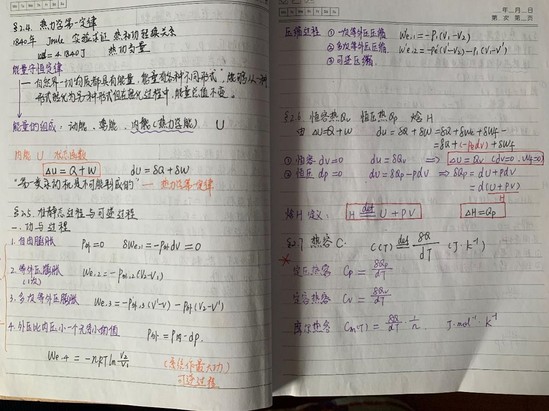 §2.4. 热力学第一定律
1840年 Joule 实验求证 热和功转换关系
1cal = 4.1840J 热功当量
能量守恒定律
— 自然界一切物质都具有能量，能量有各种不同形式，能够从一种
形式转化为另一种形式但在转化过程中，能量总值不变。
能量的组成：动能、势能、内能(热力学能) U
内能 U 状态函数
ΔU = Q + W dU = δQ + δW
"第一类永动机是不可能制成的" — 热力学第一定律
§2.5. 准静态过程与可逆过程
一. 功与过程
1. 自由膨胀 P外=0 δWe,1 = -P外dV = 0
2. 等外压膨胀 We,2 = -P外,2(V2-V1)
(1次)
3. 多次等外压膨胀 We,3 = -P外,3(V'-V) - P外(V2-V')
4. 外压比内压小一个无穷小的值 P外 = P内 - dP.
We,4 = -nRT ln V2/V1 (系统作最大功)
可逆过程
年 月 日
第 次 第 页
压缩过程 ① 一次等外压压缩 We,1 = -P1(V1-V2)
② 多次等外压压缩 We,2 = -P'(V'-V2) - P1(V1-V')
③ 可逆压缩
恒容热Qv 恒压热Qp 焓H
由 ΔU=Q+W dU = δQ + δW = δQ + δWe + δWf
= δQ + (-P外dV) + δWf
① 恒容 dV=0 dU = δQv ⇒ ΔU = Qv (dV=0, Wf=0)
② 恒压 dp=0 dU = δQp - pdV ⇒ δQp = dU + PdV
= d(U+PV)
H
焓H 定义: H def U + PV ΔH = Qp
热容 C: C(T) def δQ/dT (J·K⁻¹)
定压热容 Cp = δQp/dT
定容热容 Cv = δQv/dT
摩尔热容 Cm(T) = δQ/dT 1/n J·mol⁻¹·K⁻¹